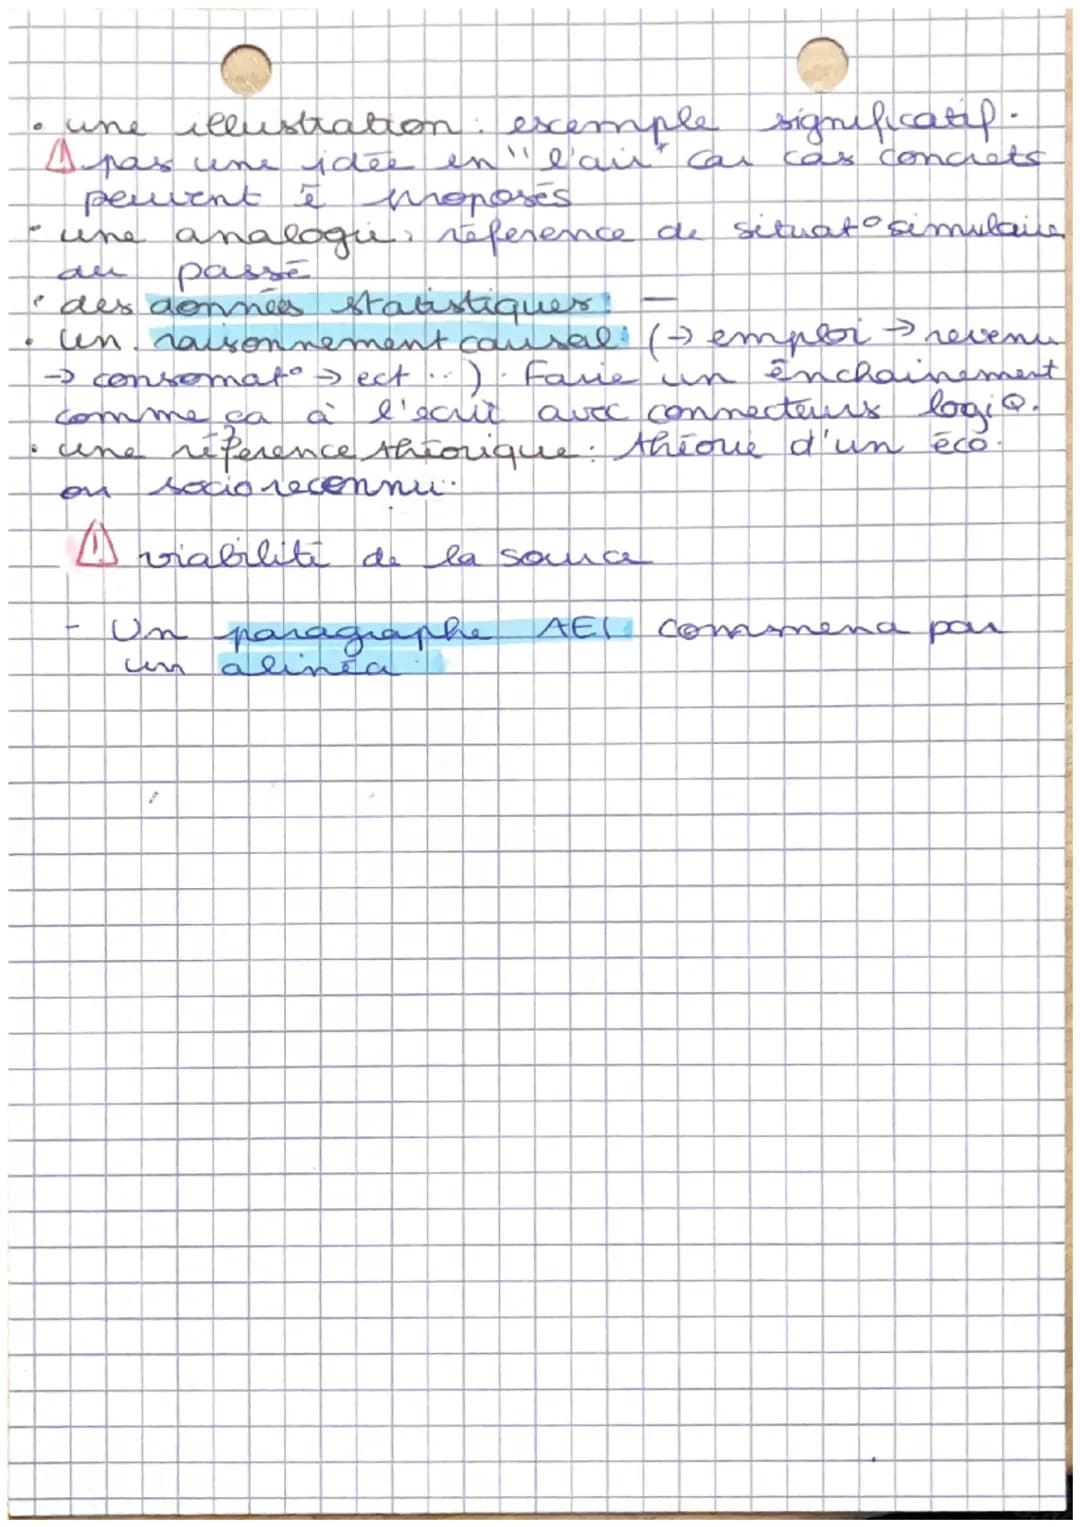 • une illustration : exemple significatif.
⚠ pas une idée en "l'air" car cas concrets
peuvent ê proposés
- une analogie : référence de situat° simulaire
du passé
• des données statistiques : —
• un raisonnement causal : (→ emploi → revenu
→ consomat° → ect...). Faire un enchainement
comme ça à l'écrit avec connecteurs logiQ.
• une référence théorique : théorie d'un éco.
ou socio reconnu.
⚠ viabilité de la source
- Un paragraphe AEI commence par
un alinéa.